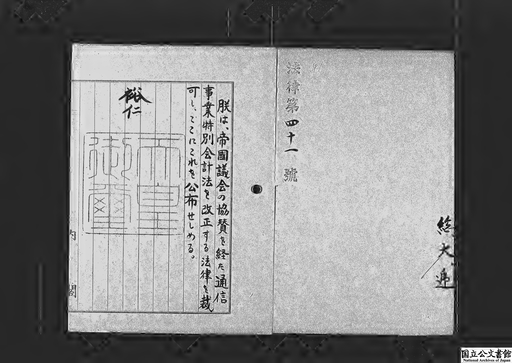 法律第四十一號
総大逓
朕は、帝國議会の協賛を経た通信
事業特別会計法を改正する法律を裁
可し、ここにこれを公布せしめる。
裕仁
天皇
御璽
内閣
国立公文書館
National Archives of Japan